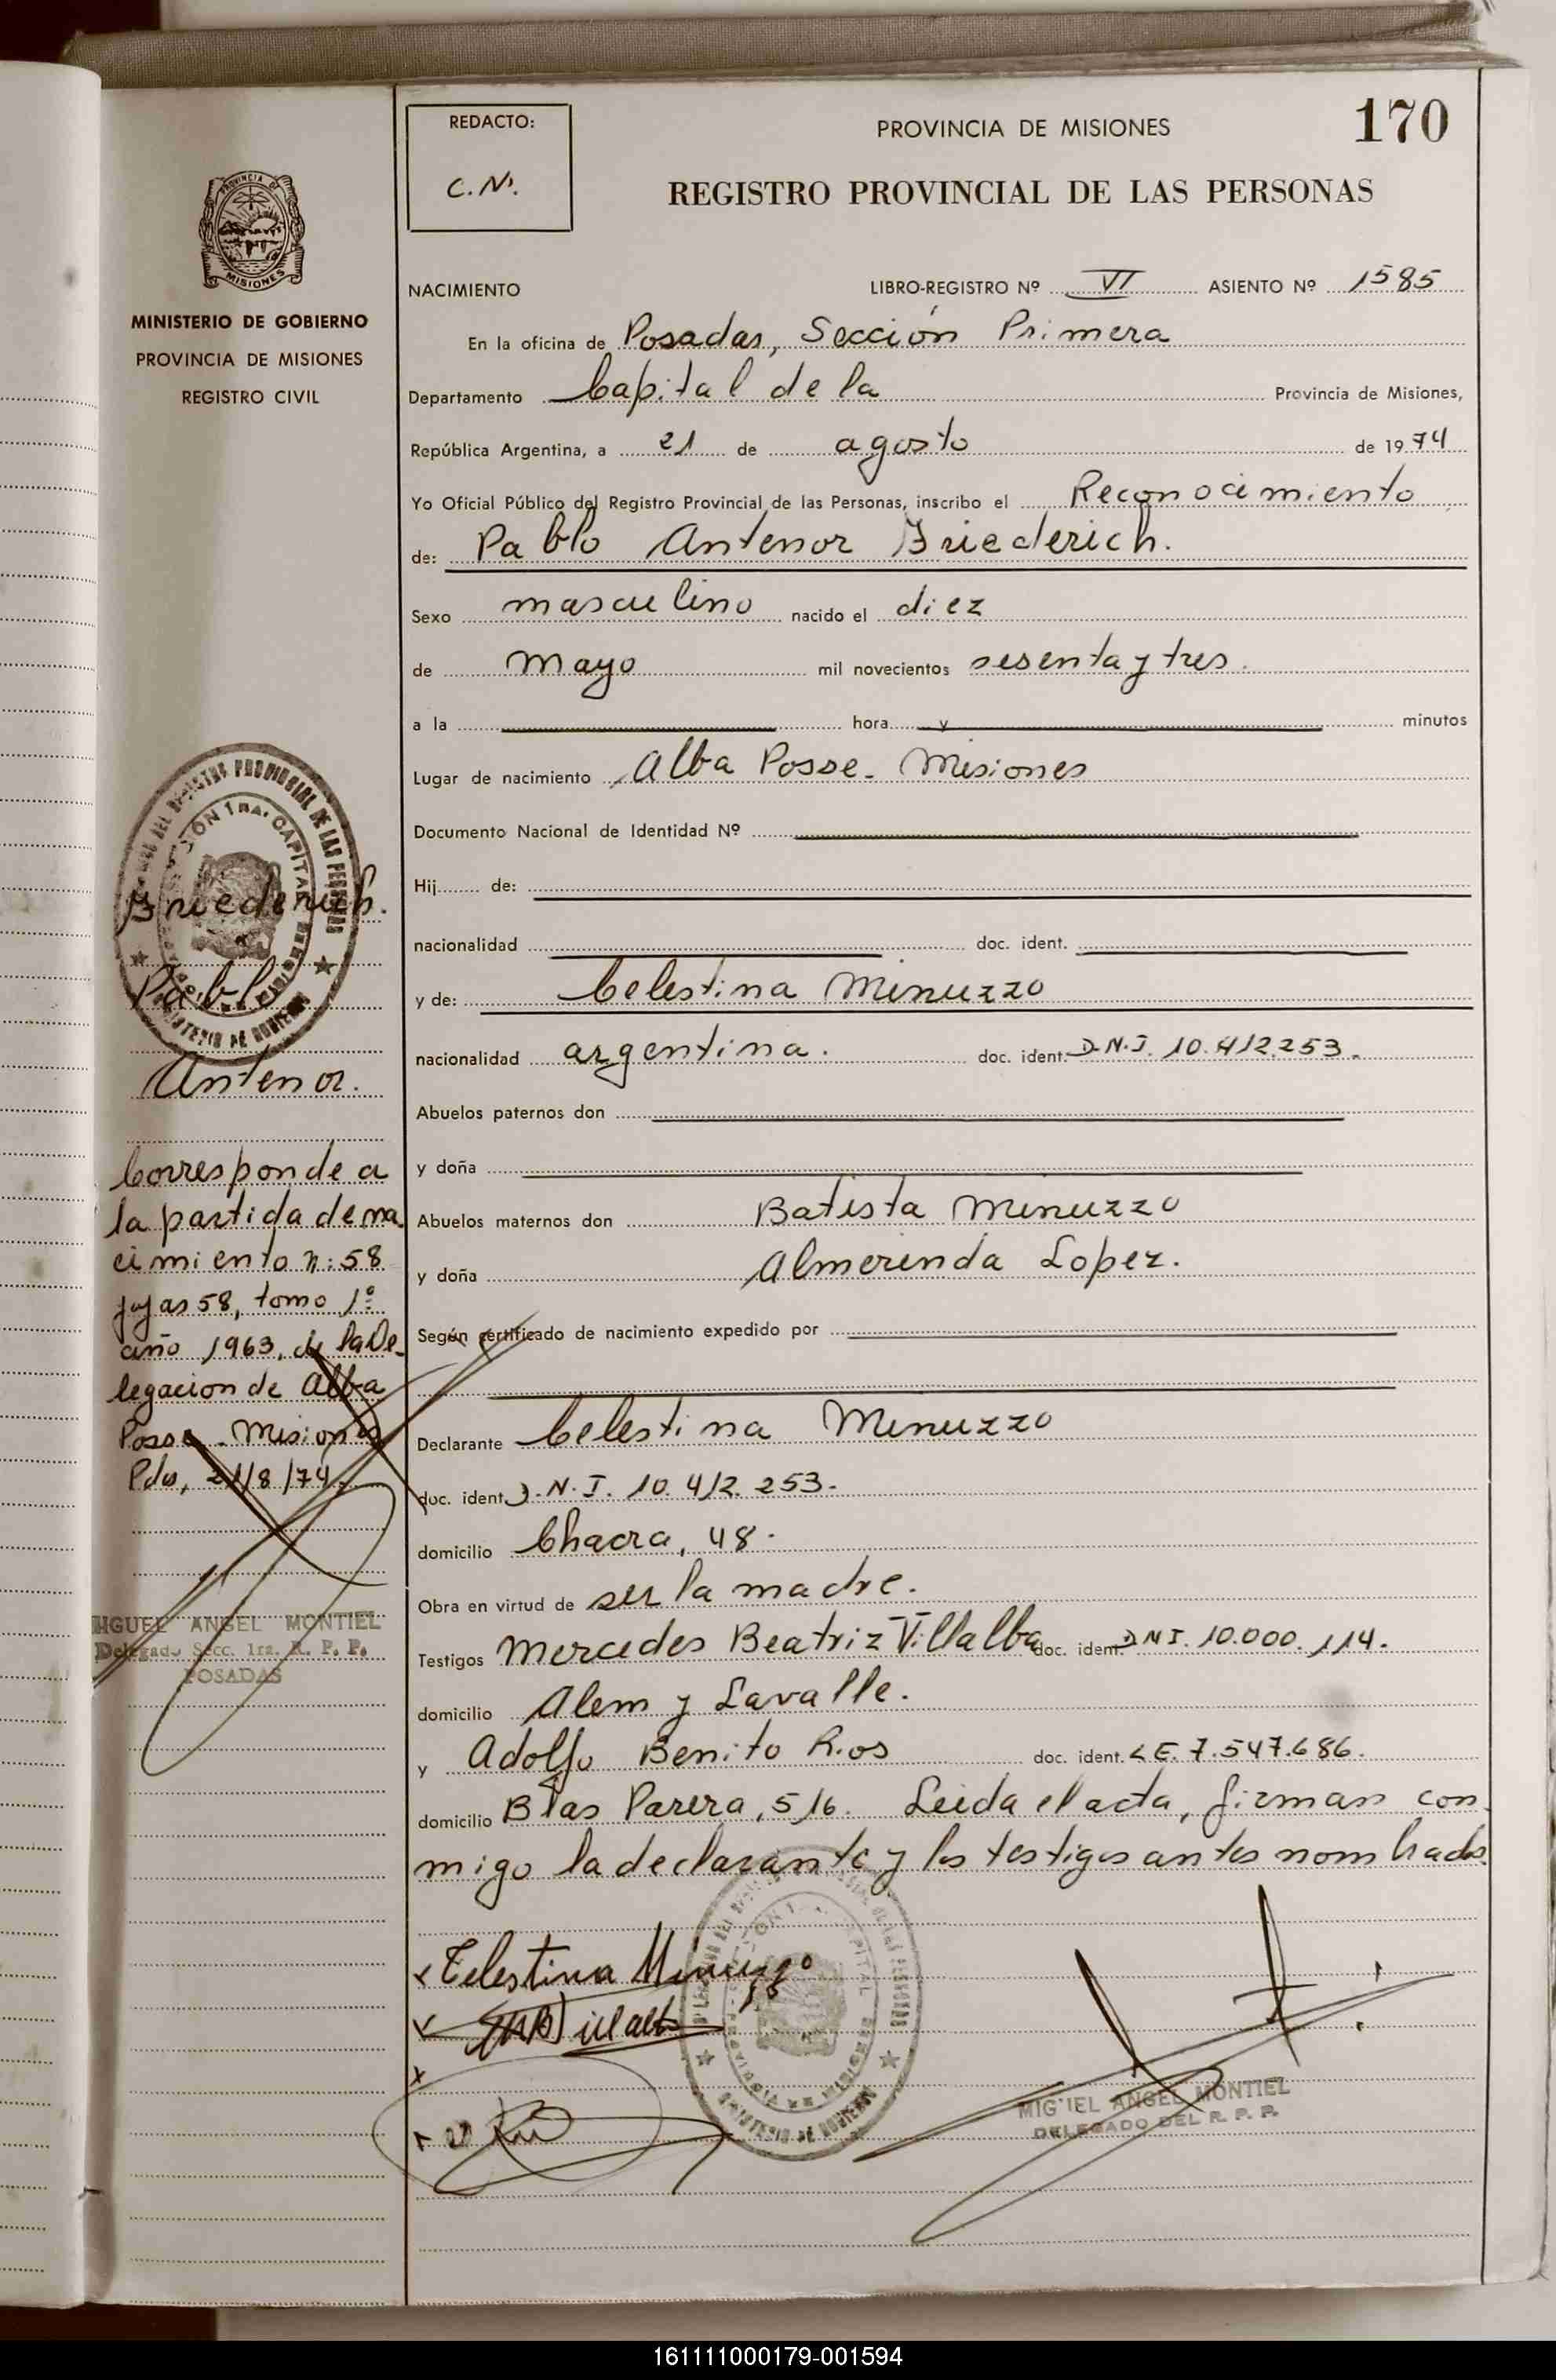 170
REDACTO:
C.N.
PROVINCIA DE MISIONES
REGISTRO PROVINCIAL DE LAS PERSONAS
PROVINCIA DE
MISIONES
MINISTERIO DE GOBIERNO
PROVINCIA DE MISIONES
REGISTRO CIVIL
NACIMIENTO LIBRO-REGISTRO Nº VI ASIENTO Nº 1585
En la oficina de Posadas, Sección Primera
Departamento Capital de la Provincia de Misiones,
República Argentina, a 21 de agosto de 1974
Yo Oficial Público del Registro Provincial de las Personas, inscribo el Reconocimiento
de: Pablo Antenor Friederich.
Sexo masculino nacido el diez
de mayo mil novecientos sesenta y tres.
a la hora y minutos
Lugar de nacimiento Alba Posse - Misiones
Documento Nacional de Identidad Nº
Hij de:
nacionalidad doc. ident.
y de: Celestina Minuzzo
nacionalidad argentina. doc. ident. D.N.I. 10.412.253.
Abuelos paternos don
y doña
Abuelos maternos don Batista Minuzzo
y doña Almerinda Lopez.
Según certificado de nacimiento expedido por
Declarante Celestina Minuzzo
doc. ident. D.N.I. 10.412.253.
domicilio Chacra, 48.
Obra en virtud de ser la madre.
Testigos Mercedes Beatriz Villalba doc. ident. DNI. 10.000.114.
domicilio Alem y Lavalle.
y Adolfo Benito Rios doc. ident. L.E. 7.547.686.
domicilio Blas Parera, 516. Leida el acta, firman con
migo la declarante y los testigos antes nombrados.
Celestina Minuzzo
MIGUEL ANGEL MONTIEL
DELEGADO DEL R. P. P.
Friederich.
Pablo
Antenor.
Corresponde a
la partida de na
cimiento n: 58
fojas 58, tomo 1º
año 1963, de la De-
legacion de Alba
Posse - Misiones
Pdas, 21/8/74.
MIGUEL ANGEL MONTIEL
Delegado Secc. 1ra. R. P. P.
POSADAS
161111000179-001594